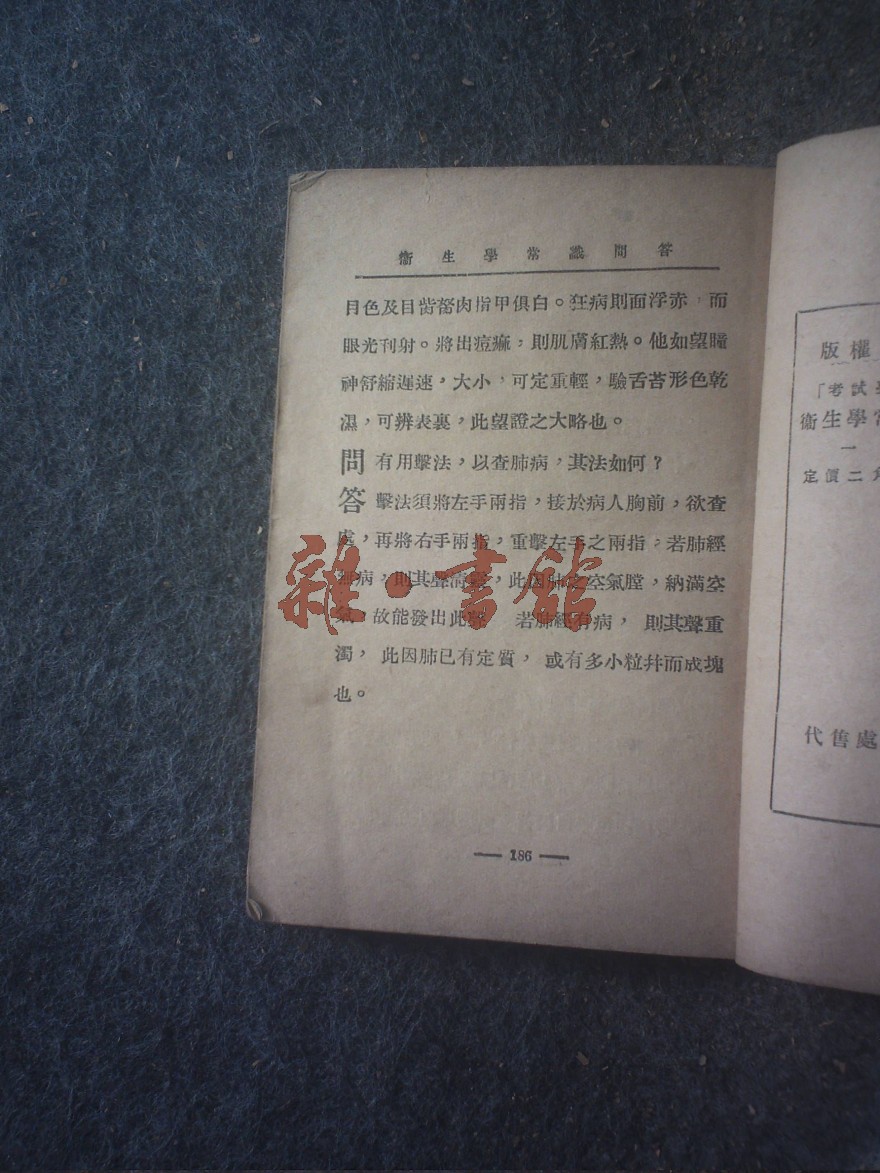 衞生學常識問答
目色及目齒齦肉指甲俱白。狂病則面浮赤，而
眼光刊射。將出痘痲，則肌膚紅熱。他如望瞳
神舒縮遲速，大小，可定重輕，驗舌苔形色乾
濕，可辨表裏，此望證之大略也。
問 有用擊法，以查肺病，其法如何？
答 擊法須將左手兩指，接於病人胸前，欲查
處，再將右手兩指，重擊左手之兩指，若肺經
病，則其聲清，此因肺之空氣膛，納滿空
故能發出此 若肺經有病，則其聲重
濁，此因肺已有定質，或有多小粒幷而成塊
也。
— 186 —
雜·書館
版權
「考試
衞生學常
一
定價二角
代售處